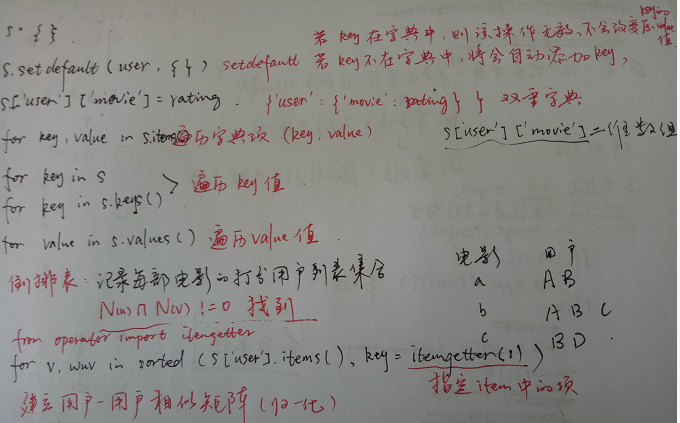 s = { }
若key在字典中,则该操作无效,不会改变原value值
s.setdefault(user, { }) setdefault 若key不在字典中,将会自动添加key,
s['user']['movie'] = rating. {'user': {'movie': rating}} 双重字典
for key, value in s.items 遍历字典项 (key, value)
s['user']['movie'] = 二维数组
for key in s
for key in s.keys() > 遍历key值
for value in s.values() 遍历value值.
倒排表: 记录每部电影的打分用户列表集合
N(u) ∩ N(v) != 0 找到
电影 用户
a A B
b A B C
c B D
from operator import itemgetter
for v, wuv in sorted (s['user'].items(), key = itemgetter(1))
指定item中的项
建立用户-用户相似矩阵(归一化)